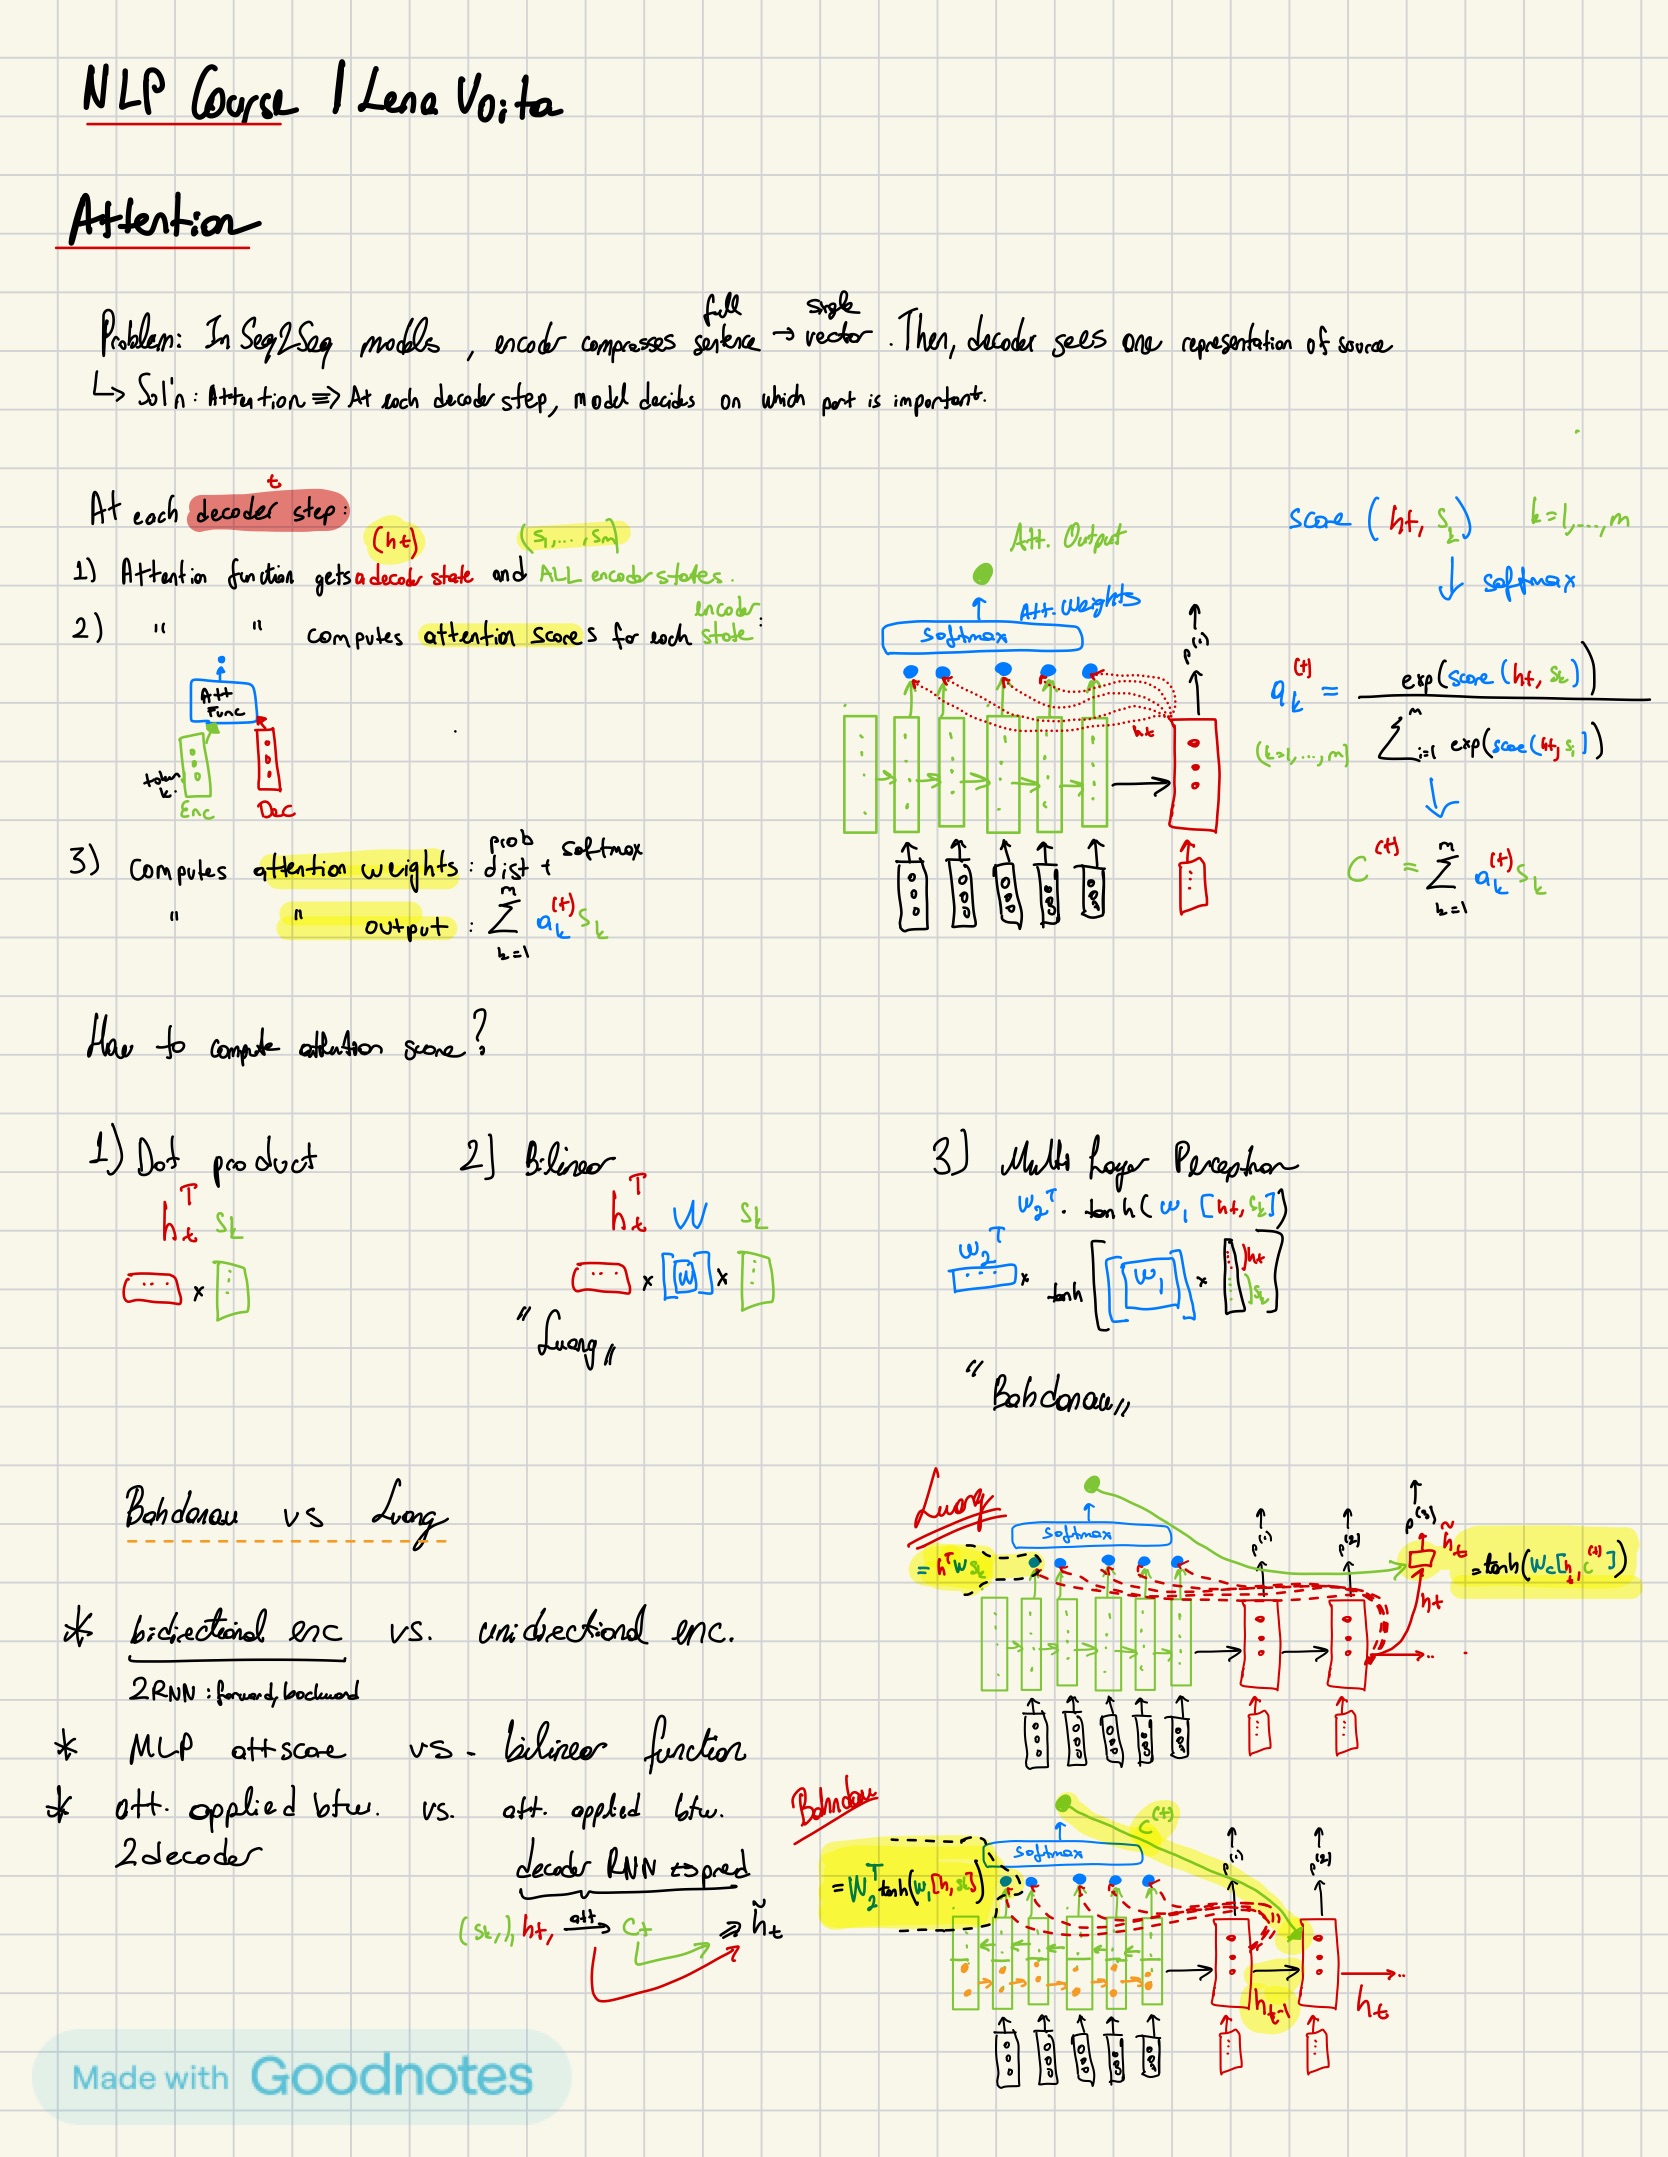 NLP Course | Lena Voita
Attention
Problem: In Seq2Seq models, encoder compresses full sentence → single vector. Then, decoder sees one representation of source
↳ Sol'n: Attention ⇒ At each decoder step, model decides on which part is important.
At each decoder step: t
(ht) (s1,..., sm)
1) Attention function gets a decoder state and ALL encoder states.
2) " " computes attention scores for each encoder state:
Att Func
token k:
Enc Dec
3) Computes attention weights: prob dist + softmax
" " output: ∑ k=1 m ak(t) sk
Att. Output
Att. Weights
softmax
p(1)
ht
score (ht, sk) k=1,...,m
↓ softmax
ak(t) = exp(score(ht, sk)) / ∑ i=1 m exp(score(ht, si))
(k=1,...,m)
C(t) = ∑ k=1 m ak(t) sk
How to compute attention score?
1) Dot product
htT sk
x
2) Bilinear
htT W sk
x [W] x
"Luong"
3) Multi Layer Perceptron
w2T · tanh(w1 [ht, sk])
w2T x tanh [[w1] x ht sk]
"Bahdanau"
Bahdanau vs Luong
* bidirectional enc vs. unidirectional enc.
2RNN: forward, backward
* MLP att score vs. bilinear function
* att. applied btw. 2 decoder vs. att. applied btw. decoder RNN ↔ pred
(sk,), ht, att → ct ⇒ h̃t
Luong
softmax
= hTWsk
p(1) p(2) p(3)
h̃t = tanh(Wc[ht, c(t)])
ht
Bahndau
C(t)
softmax
= W2T tanh(w1[h, sk])
p(1) p(2)
ht-1 ht
Made with Goodnotes